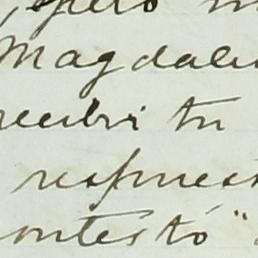 , pero
Magdalen
recibi tu
respues
ontestó"